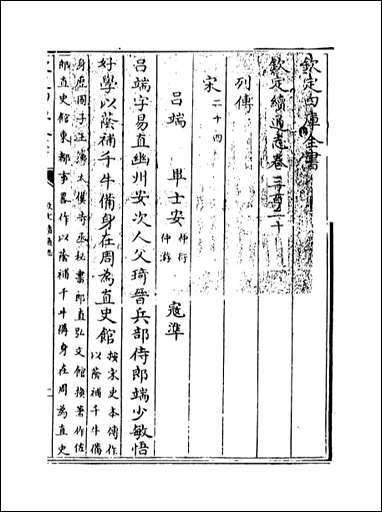 欽定四庫全書
欽定續通志卷三百二十
列傳
宋二十四
呂端　畢士安仲衍仲游　寇準
呂端字易直幽州安次人父琦晉兵部侍郎端少敏悟
好學以蔭補千牛備身在周為直史館按宋史本傳作以蔭補千牛備
身歷國子主簿太僕寺丞秘書郎直弘文館換著作佐
郎直史館東都事畧作以蔭補千牛備身在周為直史